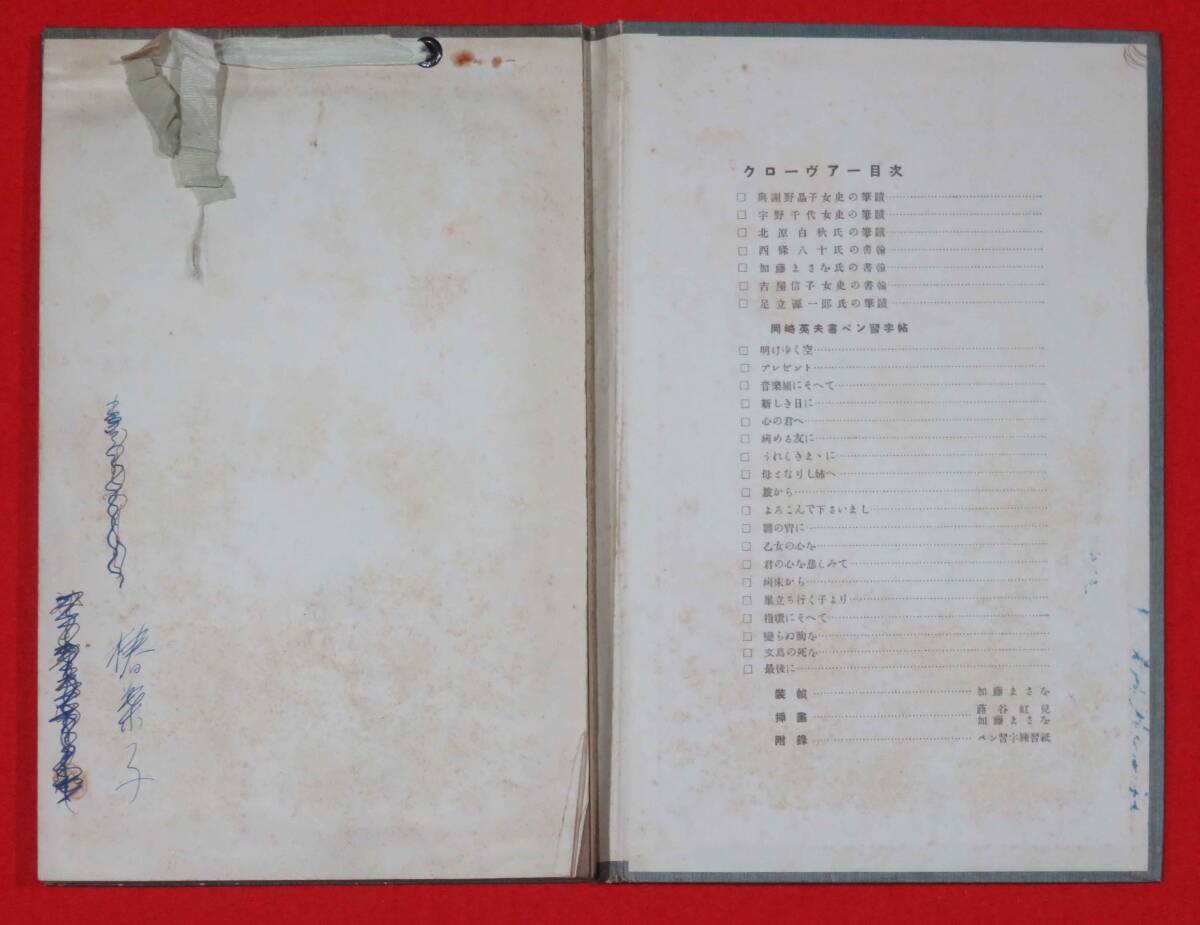 クローヴアー目次
□ 與謝野晶子女史の筆蹟
□ 宇野千代女史の筆蹟
□ 北原白秋氏の筆蹟
□ 西條八十氏の書翰
□ 加藤まさを氏の書翰
□ 吉屋信子女史の書翰
□ 足立源一郎氏の筆蹟
岡崎英夫書ペン習字帖
□ 明けゆく空
□ プレゼント
□ 音樂譜にそへて
□ 新しき日に
□ 心の君へ
□ 病める友に
□ うれしきまゝに
□ 母となりし姉へ
□ 旅から
□ よろこんで下さいまし
□ 雛の宵に
□ 乙女の心を
□ 君の心を悲しみて
□ 病床から
□ 巣立ち行く子より
□ 指環にそへて
□ 變らぬ胸を
□ 文鳥の死を
□ 最後に
裝幀 加藤まさを
挿畫 蕗谷虹兒
加藤まさを
附錄 ペン習字練習紙